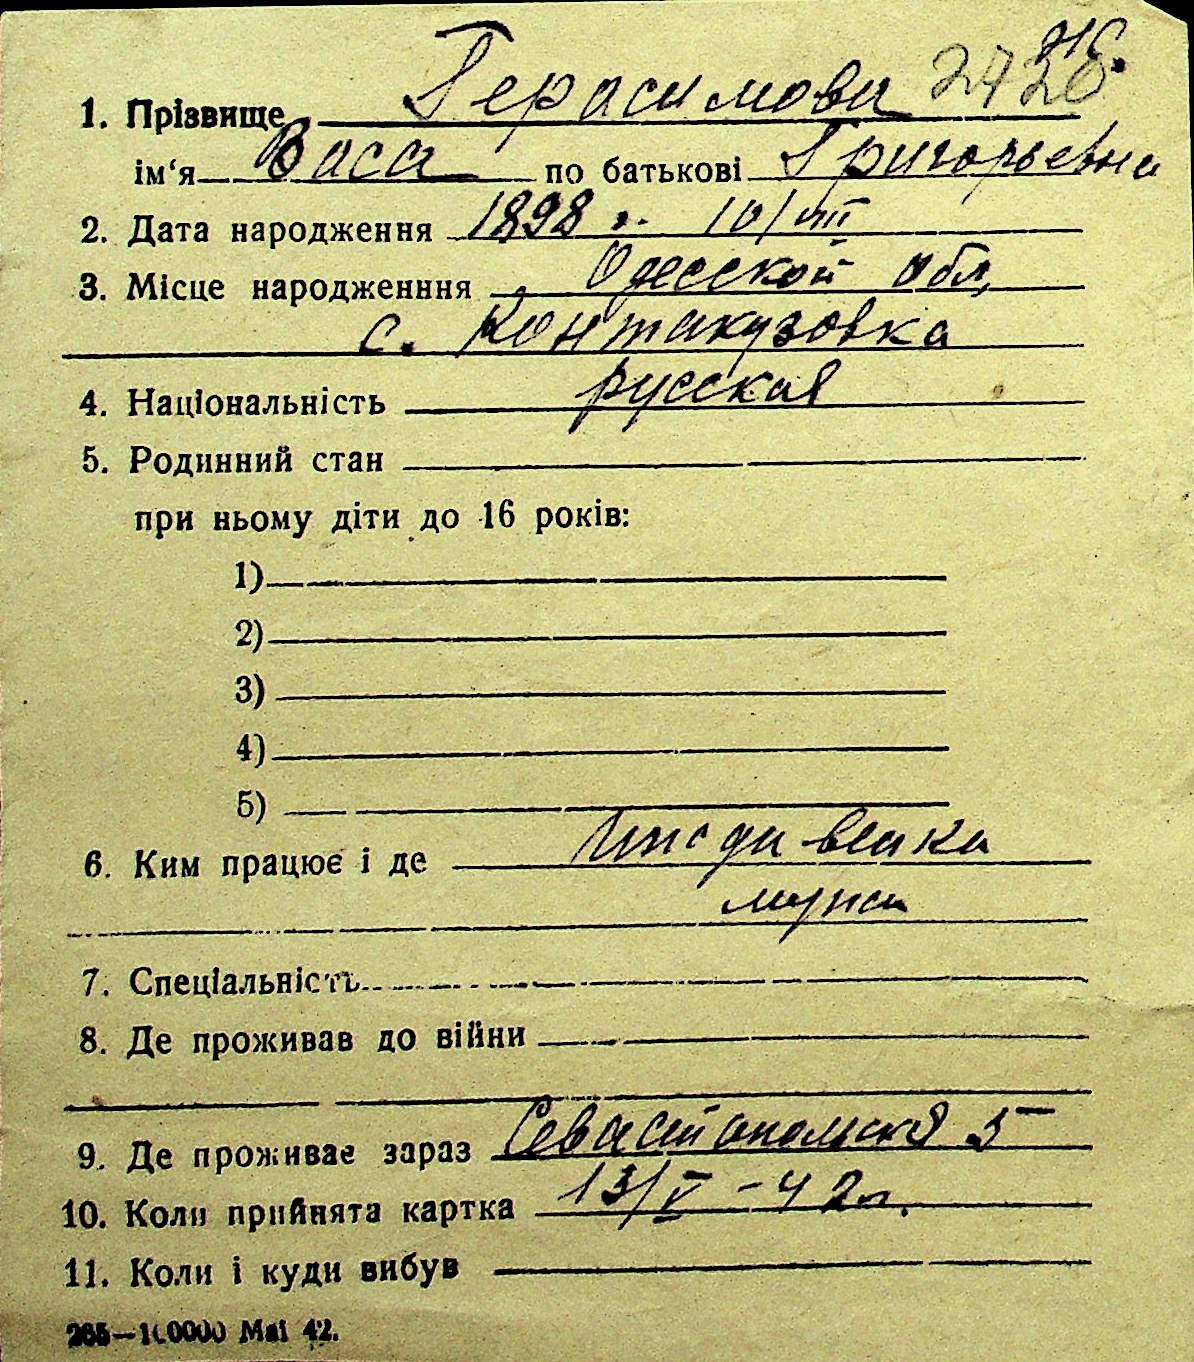 1. Прізвище Герасимова 2428
ім‘я Васа по батькові Григорьевна
2. Дата народження 1898 г. 10/VIII
3. Місце народженння Одесской обл,
с. Контакузовка
4. Національність русская
5. Родинний стан
при ньому діти до 16 років:
1)
2)
3)
4)
5)
6. Ким працює і де
мужа
7. Спеціальність
8. Де проживав до війни
9. Де проживає зараз Севастопольская 5
10. Коли прийнята картка 13/V - 42 г.
11. Коли і куди вибув
265—100000 Mai 42.